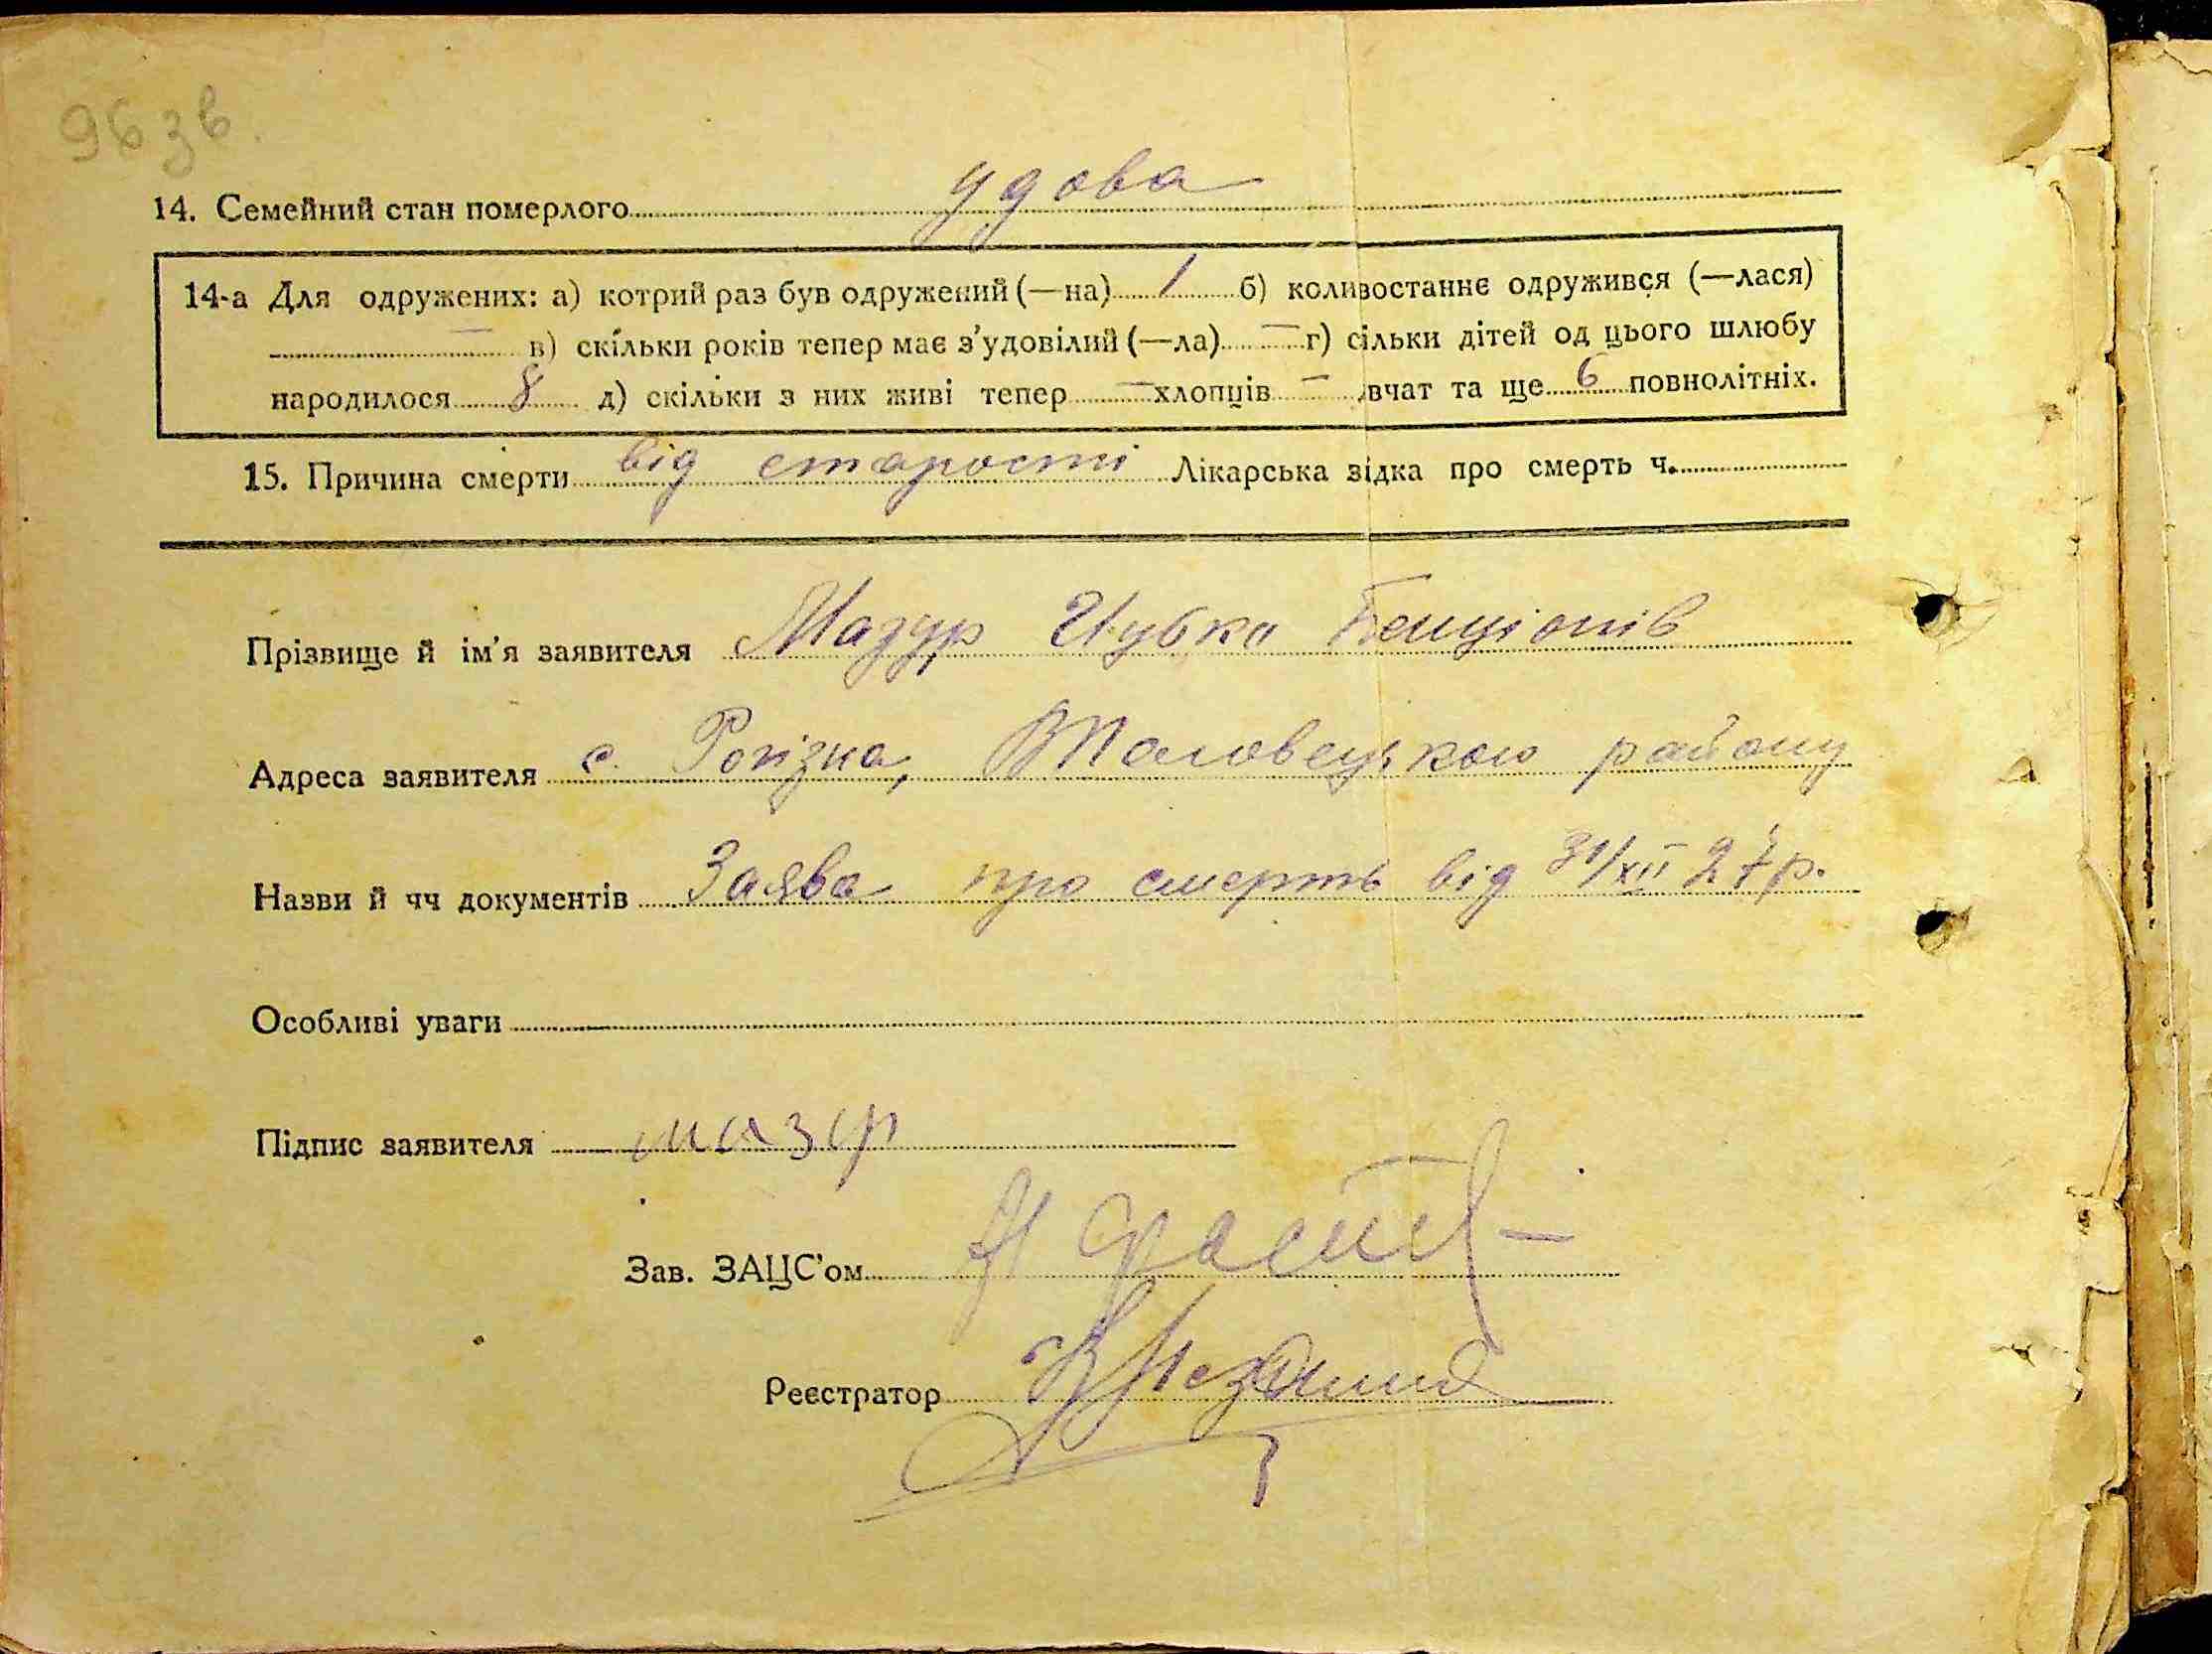 96 зв.
14. Семейний стан померлого удова
14-а Для одружених: а) котрий раз був одружений (—на) 1 б) коли востаннє одружився (—лася)
— в) скільки років тепер має з’удовілий (—ла) — г) сільки дітей од цього шлюбу
народилося 8 д) скільки з них живі тепер — хлопців — вчат та ще 6 повнолітніх.
15. Причина смерти від старости Лікарська відка про смерть ч.
Прізвище й ім’я заявителя Мазур Бенціонів
Адреса заявителя с. Рогізна, району
Назви й чч документів Заява про смерть від 31/XII 27 р.
Особливі уваги
Підпис заявителя мазур
Зав. ЗАЦС’ом
Реєстратор